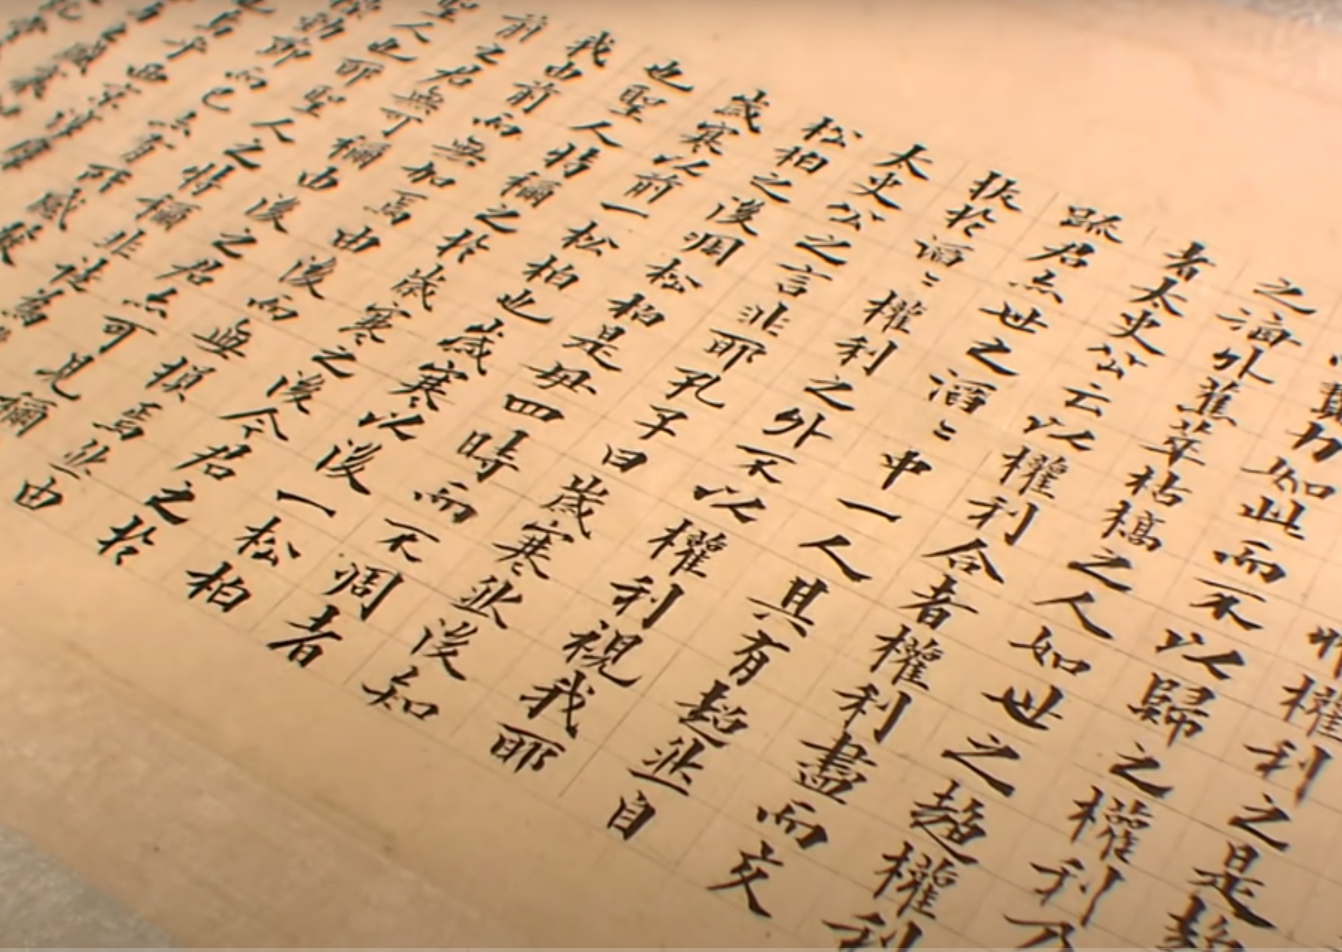 權利之是趨
費力如此而不以歸之權利乃
之海外蕉萃枯槁之人如世之趨權利
者太史公云以權利合者權利盡而交
踈君亦世之滔〻中一人其有超然自
拔於滔〻權利之外不以權利視我耶
太史公之言非耶孔子曰歲寒然後知
松柏之後凋松柏是毋四時而不凋者
歲寒以前一松柏也歲寒以後一松柏
也聖人特稱之於歲寒之後今君之於
我由前而無加焉由後而無損焉然由
前之君無可稱由後之君亦可見稱
聖人也耶聖人之特稱非徒為
勁節而已亦有所感發
乎西京淳厚